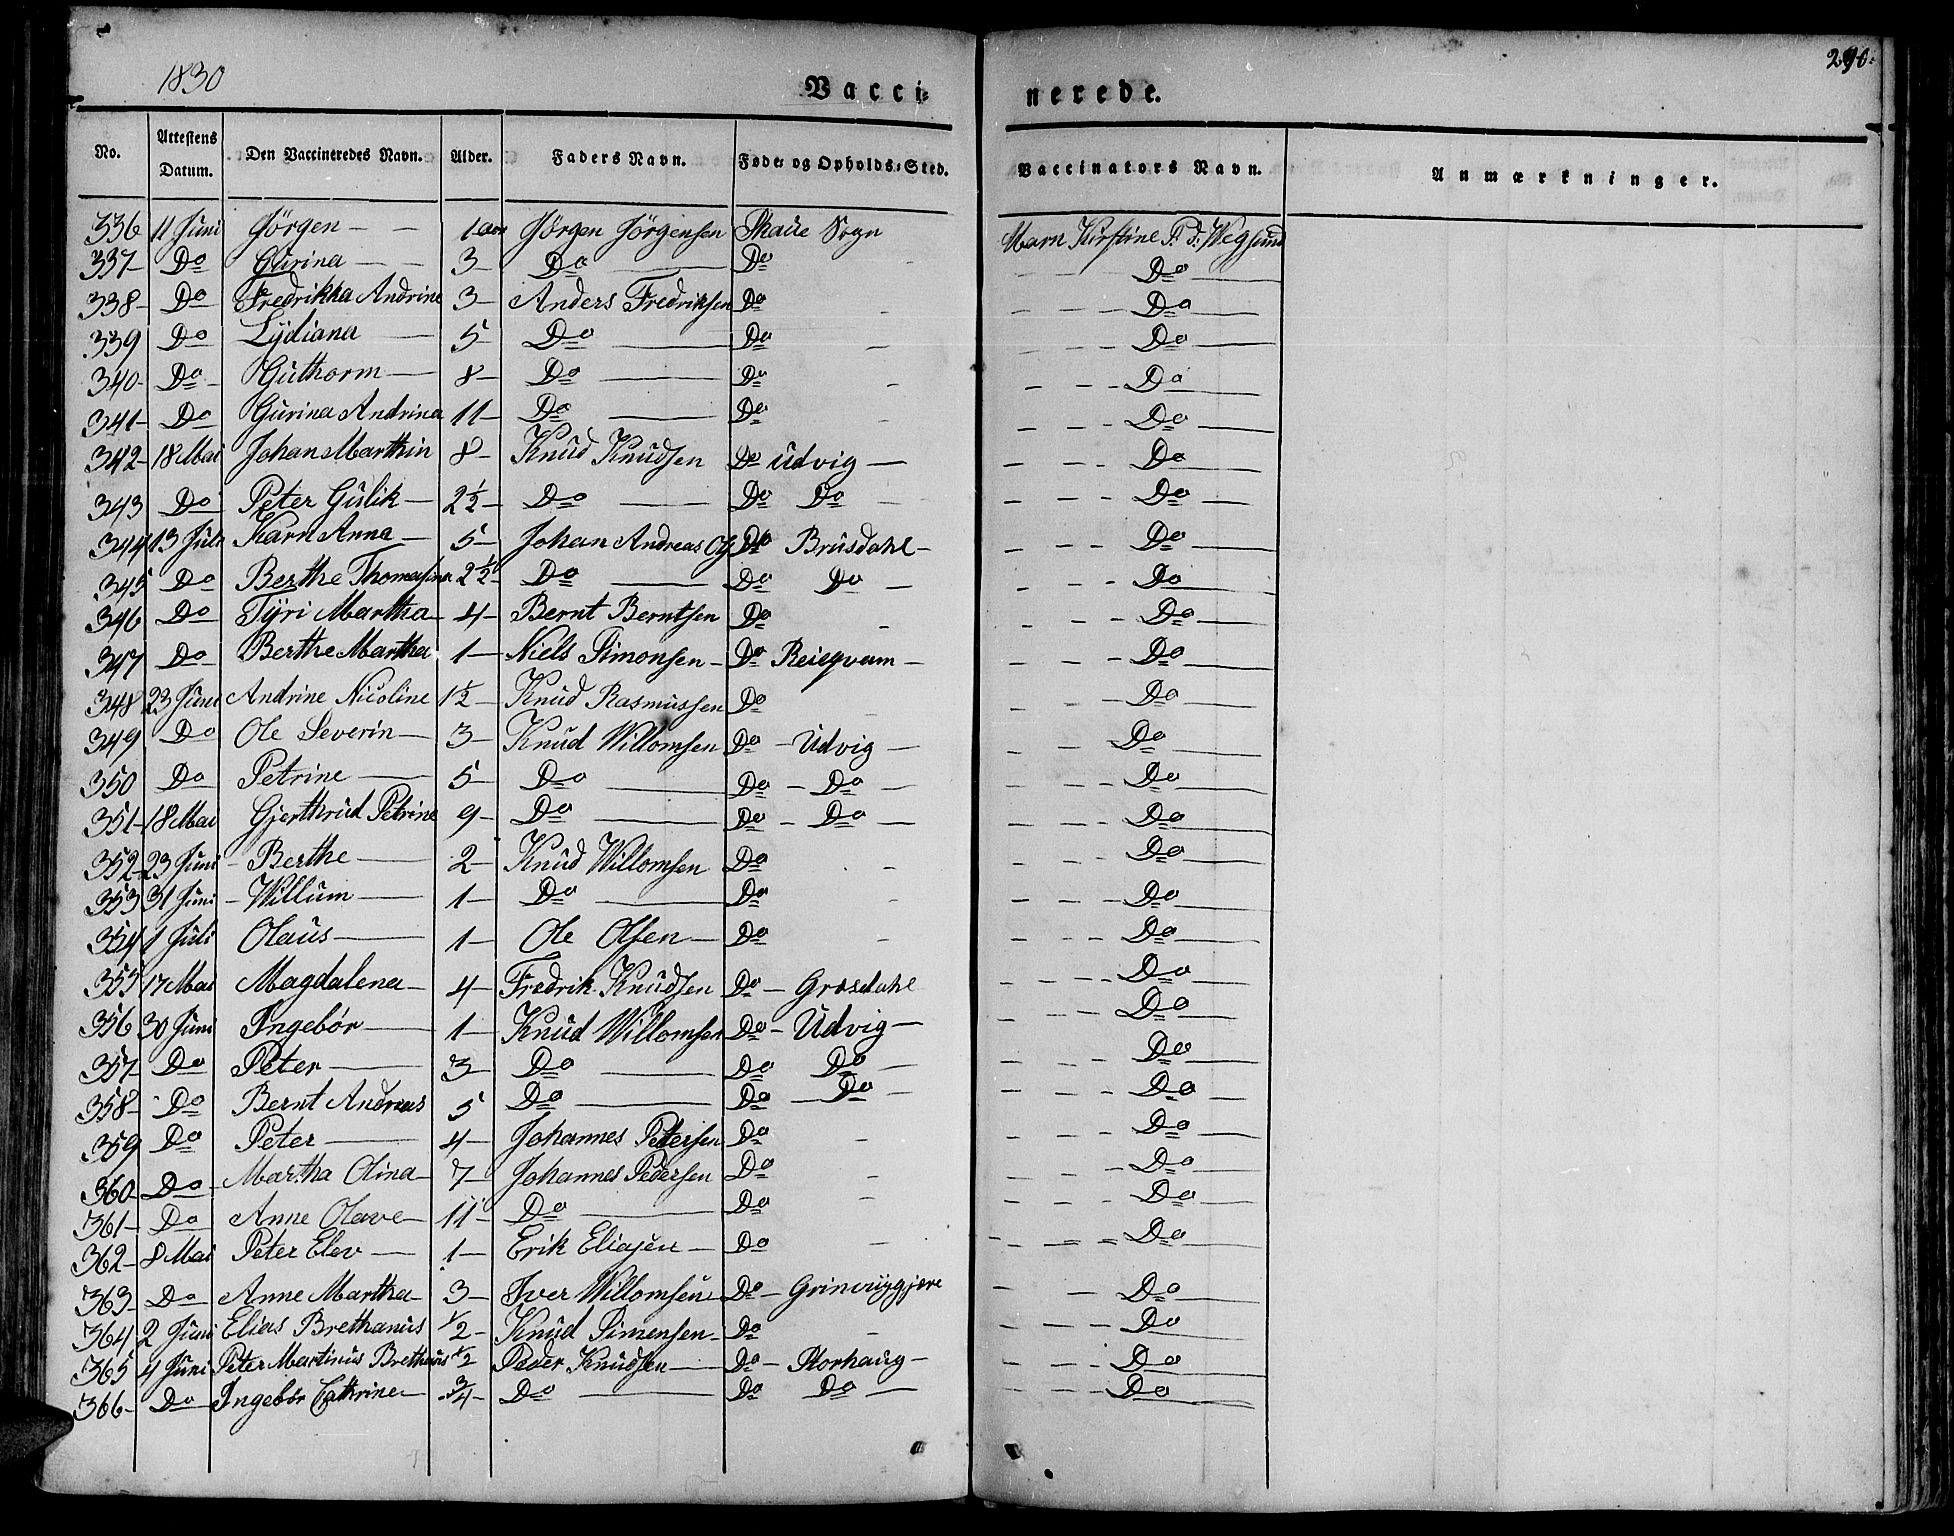 1830
290.
Vacci=
nerede.
No. Attestens Datum. Den Vaccineredes Navn. Alder. Faders Navn. Føde= og Opholds=Sted. Vaccinators Navn. Anmærkninger.
336 11 Juni Jörgen - - 1 aar Jörgen Jörgensen Skaue Sogn Marn Kirstine P. d: Wegsund
337- Do Gurina - - 3- Do Do - Do
338- Do Fredrikka Andrine 3- Anders Fredriksen Do - - - Do
339 Do Lydiana 5- Do Do - - - Do
340- Do Guthorm 8- Do Do - - - Do
341- Do Gurina Andrina 11- Do Do - - - Do
342- 18 Mai Johan Marthin 8- Knud Knudsen Do Udvig - - - - Do
343 Do Peter Gulik 2½- Do Do Do - - - - Do
344 13 Juli Karn Anna 5- Johan Andreas Ols Do Brusdahl - - - - Do
345 Do Berthe Thomasina 2½- Do Do Do - - - - Do
346 Do Tyri Martha 4- Bernt Berntsen Do - - - - Do
347 Do Berthe Martha 1- Niels Simonsen - Do Reieqvam - - - - Do
348 23 Juni Andrine Nicoline 1½- Knud Rasmussen Do - - - - Do
349 Do Ole Severin 3- Knud Willomsen Do - Udvig - - - - Do
350 Do Petrine 5- Do Do - Do - - - - Do
351- 18 Mai Gjerthrud Petrine 9- Do Do - Do - - - - Do
352- 23 Juni - Berthe 2- Knud Willomsen Do - - - - Do
353 31 Juni - Willum 1- Do Do - - - - Do
354 1 Juli Olaus 1- Ole Olsen Do - - - - Do
355 17 Mai Magdalena 4- Fredrik Knudsen Do - Grosdahl - - - Do
356 30 Juni Ingebör 1- Knud Willomsen Do - Udvig - - - - Do
357 Do Peter 3- Do Do Do - - - - Do
358- Do Bernt Andreas 5 Do Do - Do - - - Do
359 Do Peter 4- Johannes Petersen Do - - - - Do
360- Do Martha Olina 7- Johannes Pedersen Do - - - Do
361- Do Anne Olave 11- Do Do - - - Do
362- 8 Mai Peter Elev 1- Erik Eliasen - Do - - - - Do
363- Do Anne Martha 3- Iver Willomsen Do - - - Do
364 2 Juni Elias Brethanus ½- Knud Simensen Do - - - - Do
365 4 Juni Peter Martinus Brethanus ½ Peder Knudsen Do - Storhaug - - - - Do
366- Do Ingebör Cathrine ¾- Do Do Do - - - - Do